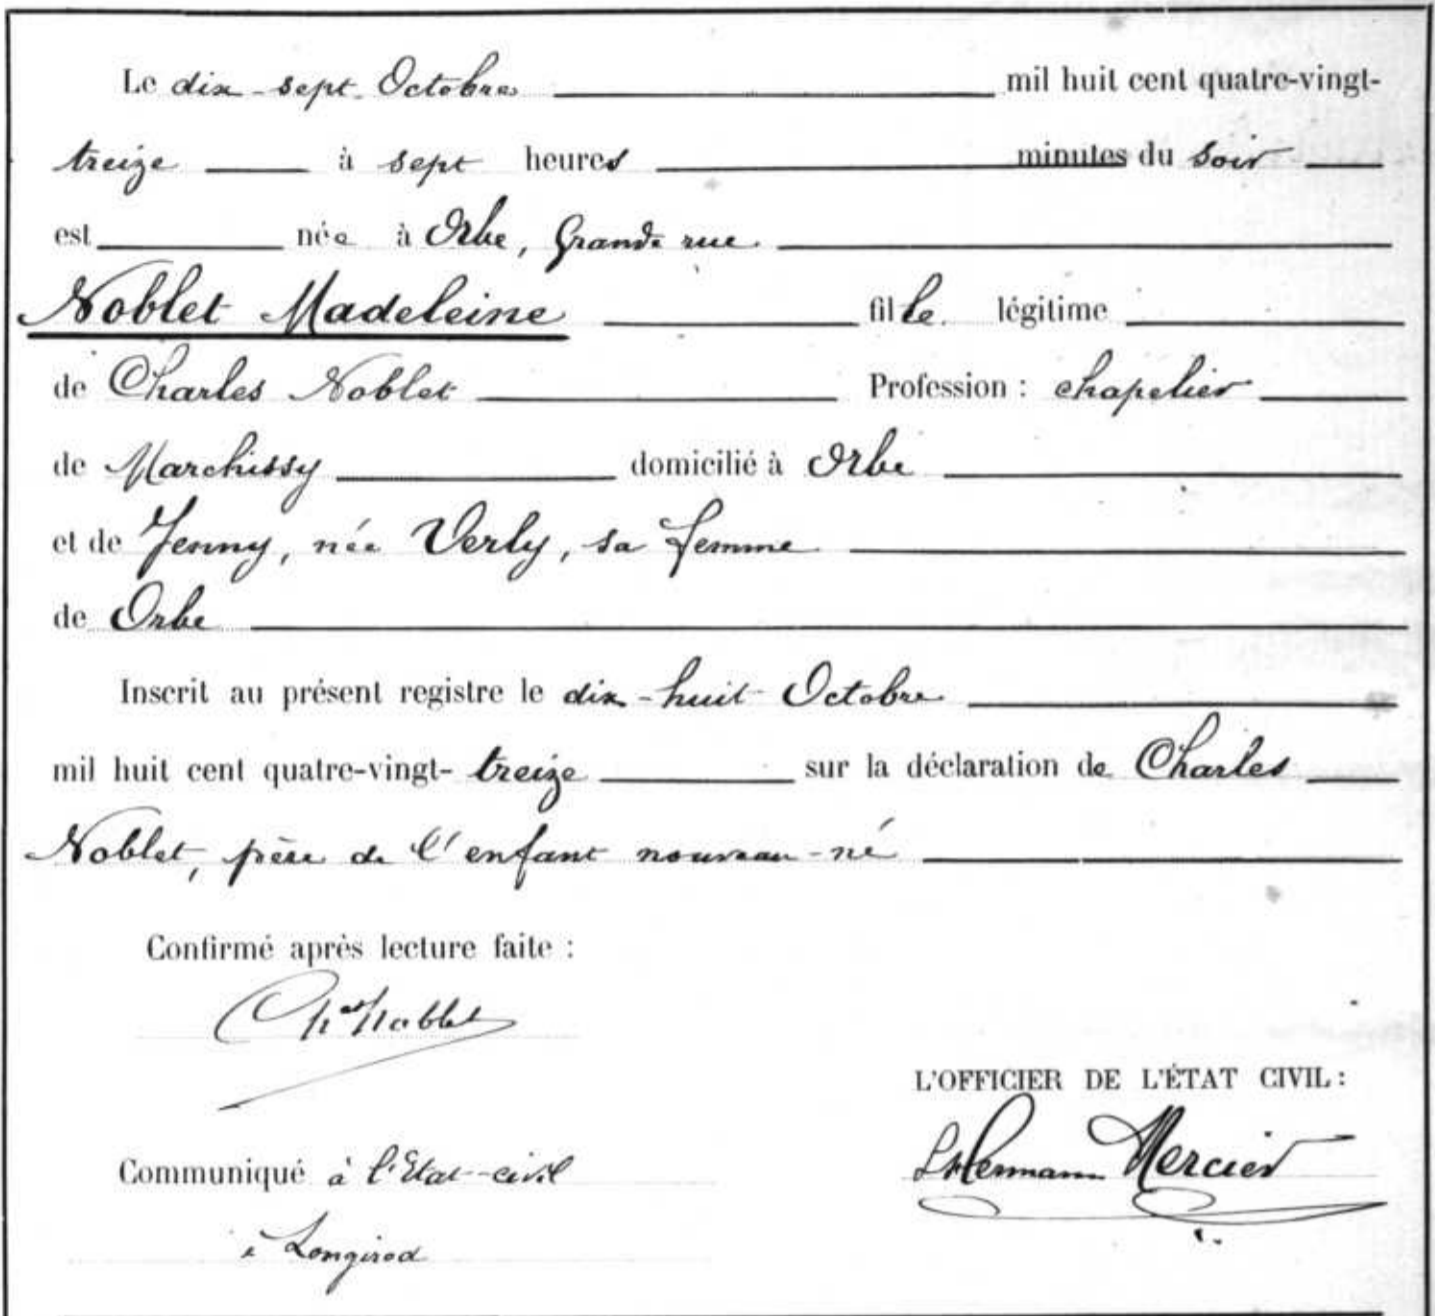 Le dix-sept Octobre mil huit cent quatre-vingt-
treize à sept heures minutes du soir
est née à Orbe, Grande rue.
Noblet Madeleine fille légitime
de Charles Noblet Profession : chapelier
de Marchissy domicilié à Orbe
et de Jenny, née Verly, sa femme
de Orbe
Inscrit au présent registre le dix-huit Octobre
mil huit cent quatre-vingt-treize sur la déclaration de Charles
Noblet, père de l'enfant nouveau-né
Confirmé après lecture faite :
Ch Noblet
L'OFFICIER DE L'ÉTAT CIVIL :
Hermann Mercier
Communiqué à l'Etat-civil
à Longirod